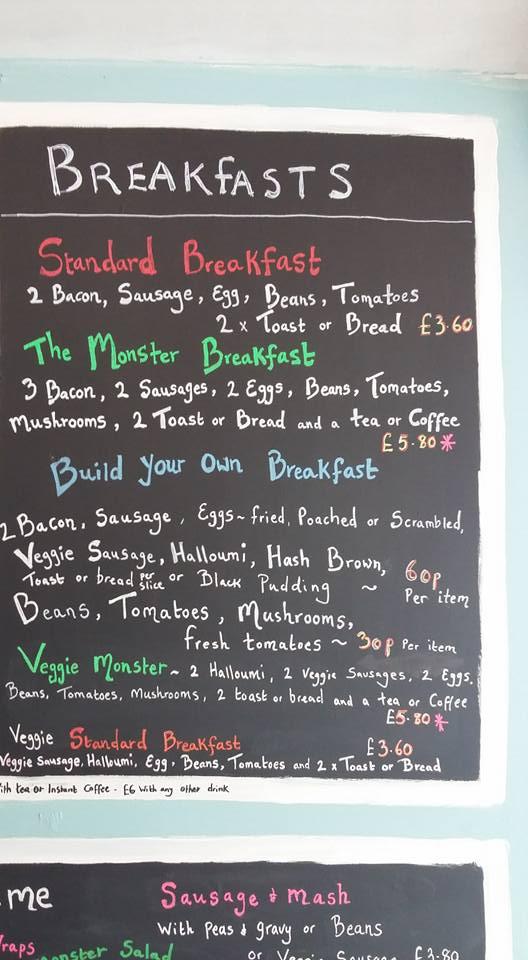 BREAKFASTS
Standard Breakfast
2 Bacon, Sausage, Egg, Beans, Tomatoes
2 x Toast or Bread £3.60
The Monster Breakfast
3 Bacon, 2 Sausages, 2 Eggs, Beans, Tomatoes,
Mushrooms, 2 Toast or Bread and a tea or Coffee
£5.80 *
Build your Own Breakfast
2 Bacon, Sausage, Eggs ~ fried, Poached or Scrambled,
Veggie Sausage, Halloumi, Hash Brown, 60p
Toast or bread per slice or Black Pudding ~ Per item
Beans, Tomatoes, Mushrooms,
fresh tomatoes ~ 30p Per item
Veggie Monster ~ 2 Halloumi, 2 Veggie Sausages, 2 Eggs,
Beans, Tomatoes, Mushrooms, 2 toast or bread and a tea or Coffee
£5.80 *
Veggie Standard Breakfast £3.60
Veggie Sausage, Halloumi, Egg, Beans, Tomatoes and 2 x Toast or Bread
ith tea or Instant Coffee - £6 With any other drink
me Sausage & Mash
With Peas & gravy or Beans
raps
onster Salad or Veggie Sausage £3.80